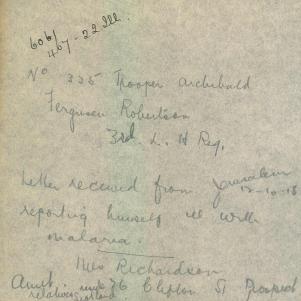 606/
467-22 Ill.
No 335 Trooper Archibald
Ferguson Robertson
3rd. L. H Reg.
Letter received from Jerusalem
12-10-18
reporting himself ill with
malaria.
Mrs Richardson
Aunt. 36 Clifton St Prospect
relatives